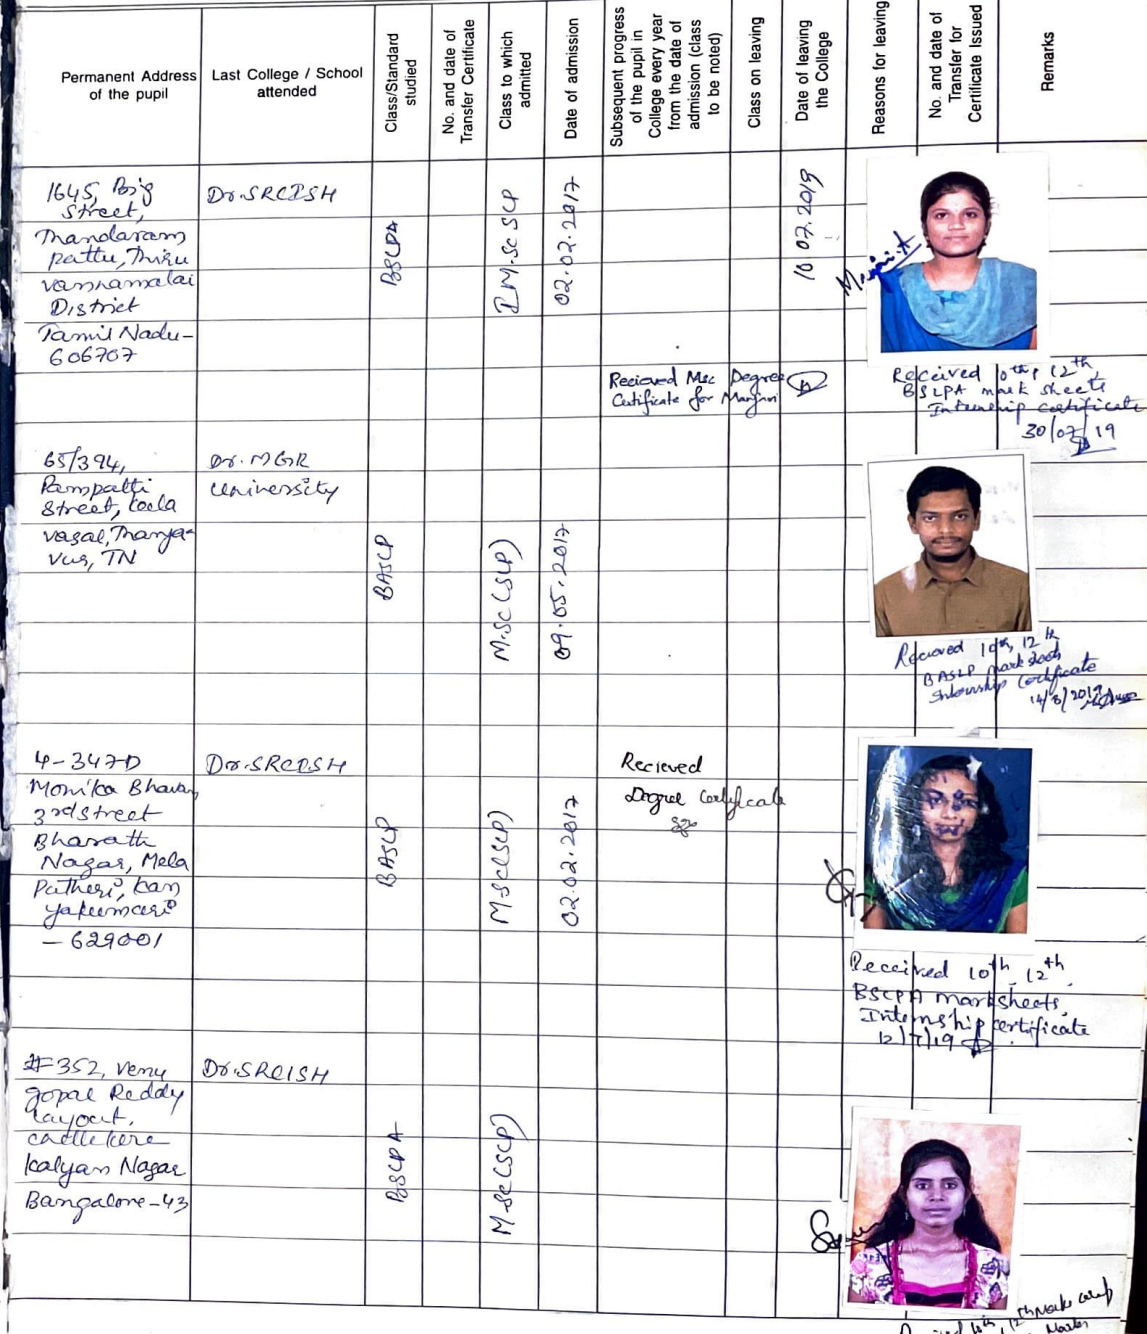 Permanent Address
of the pupil
Last College / School
attended
Class/Standard
studied
No. and date of
Transfer Certificate
Class to which
admitted
Date of admission
Subsequent progress
of the pupil in
College every year
from the date of
admission (class
to be noted)
Class on leaving
Date of leaving
the College
Reasons for leaving
No. and date of
Transfer for
Certificate Issued
Remarks
1645, Big
Street,
Thandaram
pattu, Thiru
vannamalai
District
Tamil Nadu-
606707
Dr.SRCISH
BSLPA
I M.Sc SLP
02.02.2017
10 07.2019
Recieved Msc Degree
Certificate for Manjari
Received 10th, 12th,
BSLPA mark sheets
Internship certificate
30/07/19
65/394,
Pampatti
Street, Keela
vasal, Thanja-
vur, TN
Dr. MGR
University
BASLP
M.Sc (SLP)
09.05.2017
Recieved 10th, 12th
BASLP mark sheets
Internship Certificate
14/8/2019
4-347D
Monika Bhavan
3rd Street
Bharath
Nagar, Mela
Patheri, Kan
yakumari
- 629001
Dr.SRCISH
BASLP
M.Sc(SLP)
02.02.2017
Recieved
Degree Certificate
Received 10th, 12th,
BSLPA marksheets,
Internship certificate
12/7/19
#352, Venu
gopal Reddy
Layout,
Kalyan Nagar
Bangalore-43
Dr.SRCISH
BSLPA
M.Sc(SLP)